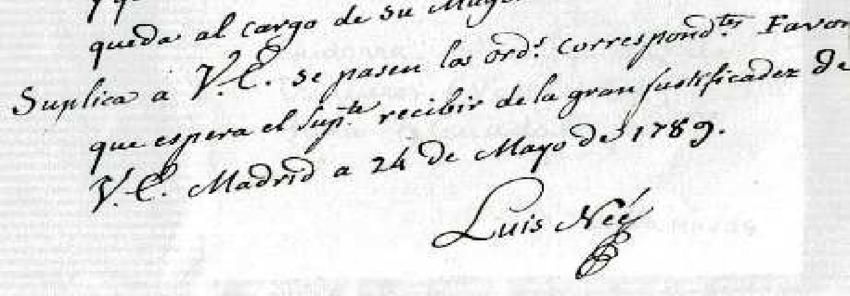 queda al cargo de su Mag
Suplica a V.E. se pasen las ordˢ. correspondᵗᵉˢ Favor
que espera el Supᵗᵉ recibir de la gran justificadez de
V.E. Madrid a 24 de Mayo de 1789.
Luis Neé